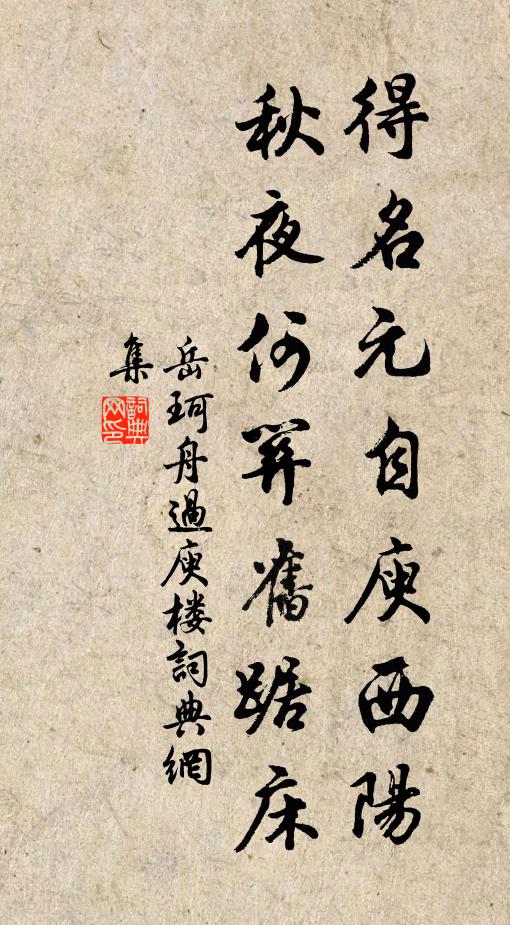 得名元自庾西陽
秋夜何筭舊踞床
岳珂舟過庾楼詞典網
集
詞典網印